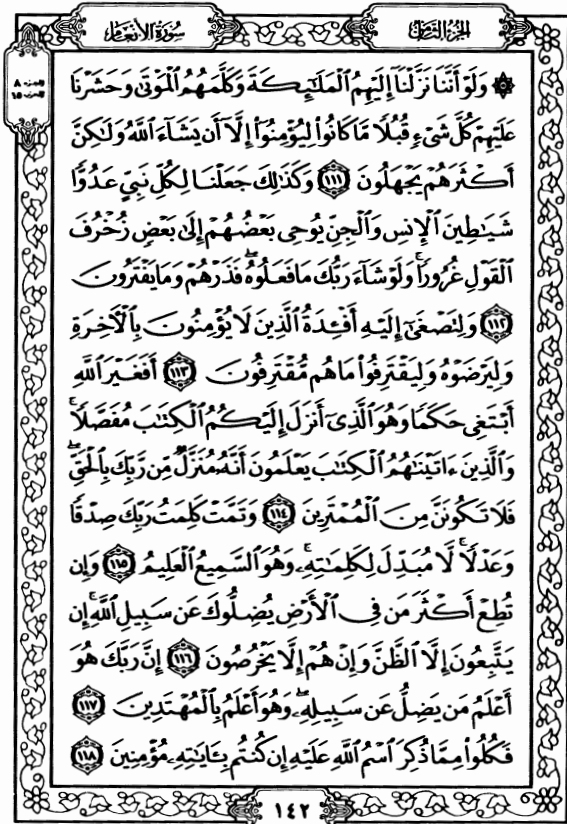 سُورَةُ الأَنْعَامِ
الجُزْءُ الثَّامِنُ
الجزء ٨
الحزب ١٥
۞ وَلَوْ أَنَّنَا نَزَّلْنَآ إِلَيْهِمُ ٱلْمَلَٰٓئِكَةَ وَكَلَّمَهُمُ ٱلْمَوْتَىٰ وَحَشَرْنَا
عَلَيْهِمْ كُلَّ شَىْءٍ قُبُلًا مَّا كَانُوا۟ لِيُؤْمِنُوٓا۟ إِلَّآ أَن يَشَآءَ ٱللَّهُ وَلَٰكِنَّ
أَكْثَرَهُمْ يَجْهَلُونَ ١١١ وَكَذَٰلِكَ جَعَلْنَا لِكُلِّ نَبِىٍّ عَدُوًّا
شَيَٰطِينَ ٱلْإِنسِ وَٱلْجِنِّ يُوحِى بَعْضُهُمْ إِلَىٰ بَعْضٍ زُخْرُفَ
ٱلْقَوْلِ غُرُورًا ۚ وَلَوْ شَآءَ رَبُّكَ مَا فَعَلُوهُ ۖ فَذَرْهُمْ وَمَا يَفْتَرُونَ
١١٢ وَلِتَصْغَىٰٓ إِلَيْهِ أَفْـِٔدَةُ ٱلَّذِينَ لَا يُؤْمِنُونَ بِٱلْءَاخِرَةِ
وَلِيَرْضَوْهُ وَلِيَقْتَرِفُوا۟ مَا هُم مُّقْتَرِفُونَ ١١٣ أَفَغَيْرَ ٱللَّهِ
أَبْتَغِى حَكَمًا وَهُوَ ٱلَّذِىٓ أَنزَلَ إِلَيْكُمُ ٱلْكِتَٰبَ مُفَصَّلًا ۚ
وَٱلَّذِينَ ءَاتَيْنَٰهُمُ ٱلْكِتَٰبَ يَعْلَمُونَ أَنَّهُۥ مُنَزَّلٌ مِّن رَّبِّكَ بِٱلْحَقِّ ۖ
فَلَا تَكُونَنَّ مِنَ ٱلْمُمْتَرِينَ ١١٤ وَتَمَّتْ كَلِمَتُ رَبِّكَ صِدْقًا
وَعَدْلًا ۚ لَّا مُبَدِّلَ لِكَلِمَٰتِهِۦ ۚ وَهُوَ ٱلسَّمِيعُ ٱلْعَلِيمُ ١١٥ وَإِن
تُطِعْ أَكْثَرَ مَن فِى ٱلْأَرْضِ يُضِلُّوكَ عَن سَبِيلِ ٱللَّهِ ۚ إِن
يَتَّبِعُونَ إِلَّا ٱلظَّنَّ وَإِنْ هُمْ إِلَّا يَخْرُصُونَ ١١٦ إِنَّ رَبَّكَ هُوَ
أَعْلَمُ مَن يَضِلُّ عَن سَبِيلِهِۦ ۖ وَهُوَ أَعْلَمُ بِٱلْمُهْتَدِينَ ١١٧
فَكُلُوا۟ مِمَّا ذُكِرَ ٱسْمُ ٱللَّهِ عَلَيْهِ إِن كُنتُم بِـَٔايَٰتِهِۦ مُؤْمِنِينَ ١١٨
١٤٢